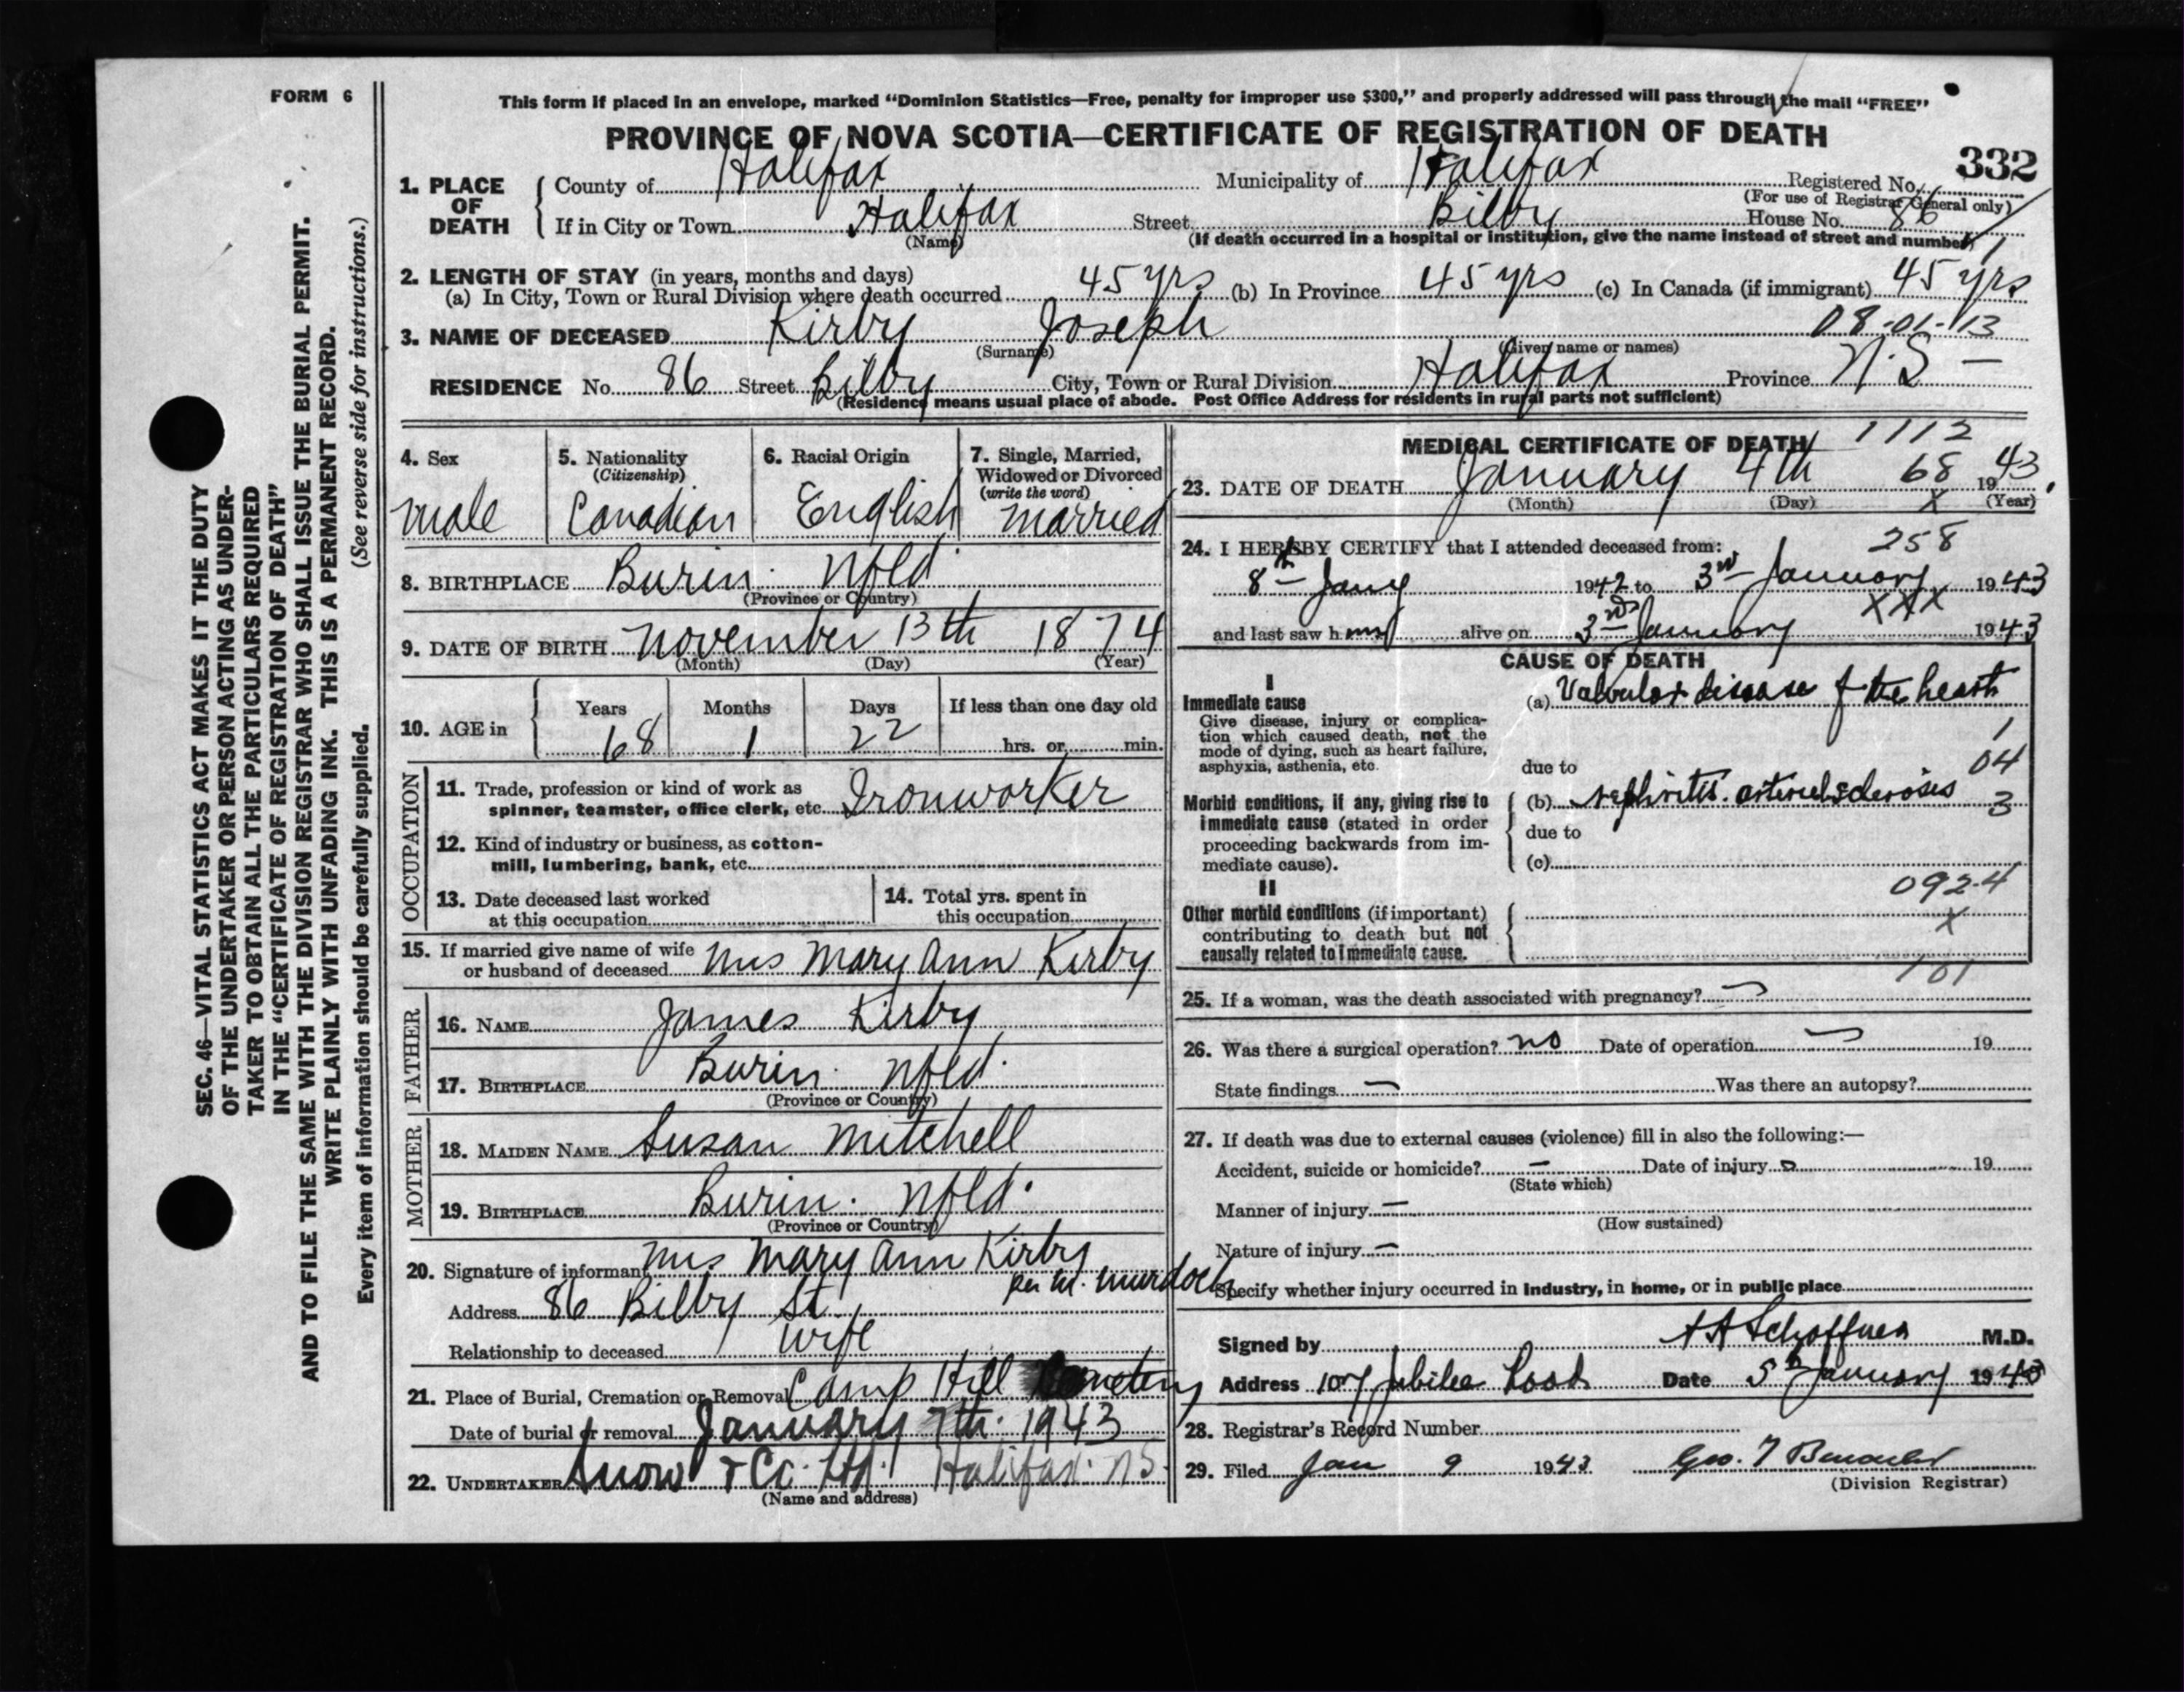 FORM 6
This form if placed in an envelope, marked "Dominion Statistics—Free, penalty for improper use $300," and properly addressed will pass through the mail "FREE"
PROVINCE OF NOVA SCOTIA—CERTIFICATE OF REGISTRATION OF DEATH
332
1. PLACE OF DEATH
County of Halifax Municipality of Halifax Registered No.
(For use of Registrar General only)
If in City or Town Halifax Street Bilby House No. 86
(Name) (If death occurred in a hospital or institution, give the name instead of street and number)
1
2. LENGTH OF STAY (in years, months and days)
(a) In City, Town or Rural Division where death occurred 45 yrs (b) In Province 45 yrs (c) In Canada (if immigrant) 45 yrs
3. NAME OF DECEASED Kirby Joseph 08-01-13
(Surname) (Given name or names)
RESIDENCE No. 86 Street Bilby City, Town or Rural Division Halifax Province N.S —
(Residence means usual place of abode. Post Office Address for residents in rural parts not sufficient)
4. Sex
male
5. Nationality
(Citizenship)
Canadian
6. Racial Origin
English
7. Single, Married, Widowed or Divorced
(write the word)
married
8. BIRTHPLACE Burin. Nfld
(Province or Country)
9. DATE OF BIRTH November 13th 1874
(Month) (Day) (Year)
10. AGE in
Years Months Days If less than one day old
68 1 22 hrs. or min.
OCCUPATION
11. Trade, profession or kind of work as
spinner, teamster, office clerk, etc. Ironworker
12. Kind of industry or business, as cotton-
mill, lumbering, bank, etc.
13. Date deceased last worked
at this occupation
14. Total yrs. spent in
this occupation
15. If married give name of wife
or husband of deceased Mrs Mary Ann Kirby
FATHER
16. NAME James Kirby
17. BIRTHPLACE Burin. Nfld.
(Province or Country)
MOTHER
18. MAIDEN NAME Susan Mitchell
19. BIRTHPLACE Burin. Nfld.
(Province or Country)
20. Signature of informant Mrs Mary Ann Kirby
per M. Murdoch
Address 86 Bilby St.
Relationship to deceased wife
21. Place of Burial, Cremation or Removal Camp Hill Cemetery
Date of burial or removal January 7th. 1943
22. UNDERTAKER Snow + Co. Ltd. Halifax. NS.
(Name and address)
MEDICAL CERTIFICATE OF DEATH
1112
23. DATE OF DEATH January 4th 68 1943.
(Month) (Day) x (Year)
24. I HEREBY CERTIFY that I attended deceased from:
258
8th Jany 1942 to 3rd January 1943
xxx
and last saw h alive on 3rd January 1943
CAUSE OF DEATH
I
Immediate cause
Give disease, injury or complica-
tion which caused death, not the
mode of dying, such as heart failure,
asphyxia, asthenia, etc.
(a) Valvular disease of the heart
1
due to
04
Morbid conditions, if any, giving rise to
immediate cause (stated in order
proceeding backwards from im-
mediate cause).
(b) nephritis. arteriosclerosis
3
due to
(c)
0924
II
Other morbid conditions (if important)
contributing to death but not
causally related to immediate cause.
x
101
25. If a woman, was the death associated with pregnancy? —
26. Was there a surgical operation? no Date of operation — 19
State findings — Was there an autopsy?
27. If death was due to external causes (violence) fill in also the following:—
Accident, suicide or homicide? — Date of injury 19
(State which)
Manner of injury —
(How sustained)
Nature of injury —
Specify whether injury occurred in Industry, in home, or in public place
Signed by M.D.
Address 107 Jubilee Road Date 5th January 1943
28. Registrar's Record Number
29. Filed Jan 9 1943 Geo.
(Division Registrar)
SEC. 46—VITAL STATISTICS ACT MAKES IT THE DUTY
OF THE UNDERTAKER OR PERSON ACTING AS UNDER-
TAKER TO OBTAIN ALL THE PARTICULARS REQUIRED
IN THE "CERTIFICATE OF REGISTRATION OF DEATH"
AND TO FILE THE SAME WITH THE DIVISION REGISTRAR WHO SHALL ISSUE THE BURIAL PERMIT.
WRITE PLAINLY WITH UNFADING INK. THIS IS A PERMANENT RECORD.
Every item of information should be carefully supplied. (See reverse side for instructions.)